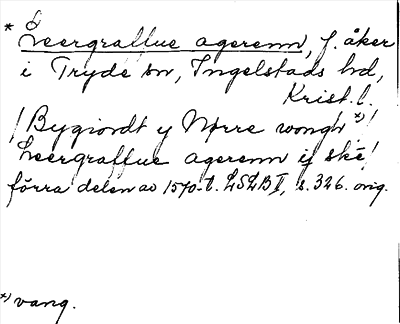 * Leergraffue agerenn, f. åker
i Tryde sn, Ingelstads hd,
Krist. l.
/Bygiordt y Nørre wongh *)/
Leergraffue agerenn ij ske/
förra delen av 1570-t. LSLB II, s. 326. orig.
*) vang.